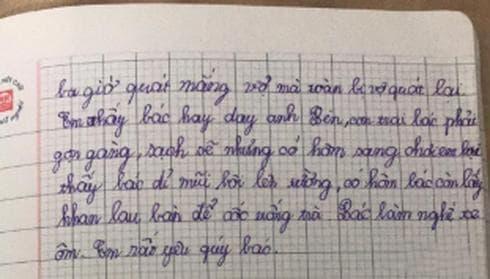 ba giờ quát mắng vợ mà toàn bị vợ quát lại.
Em thấy bác hay dạy anh Bền, con trai bác phải
gọn gàng, sạch sẽ nhưng có hôm sang chơi em lại
thấy bác dí mũi hời lên tường, có hôm bác còn lấy
khan lau bàn để cốc uống trà. Bác làm nghề xe
ôm. Em rất yêu quý bác.